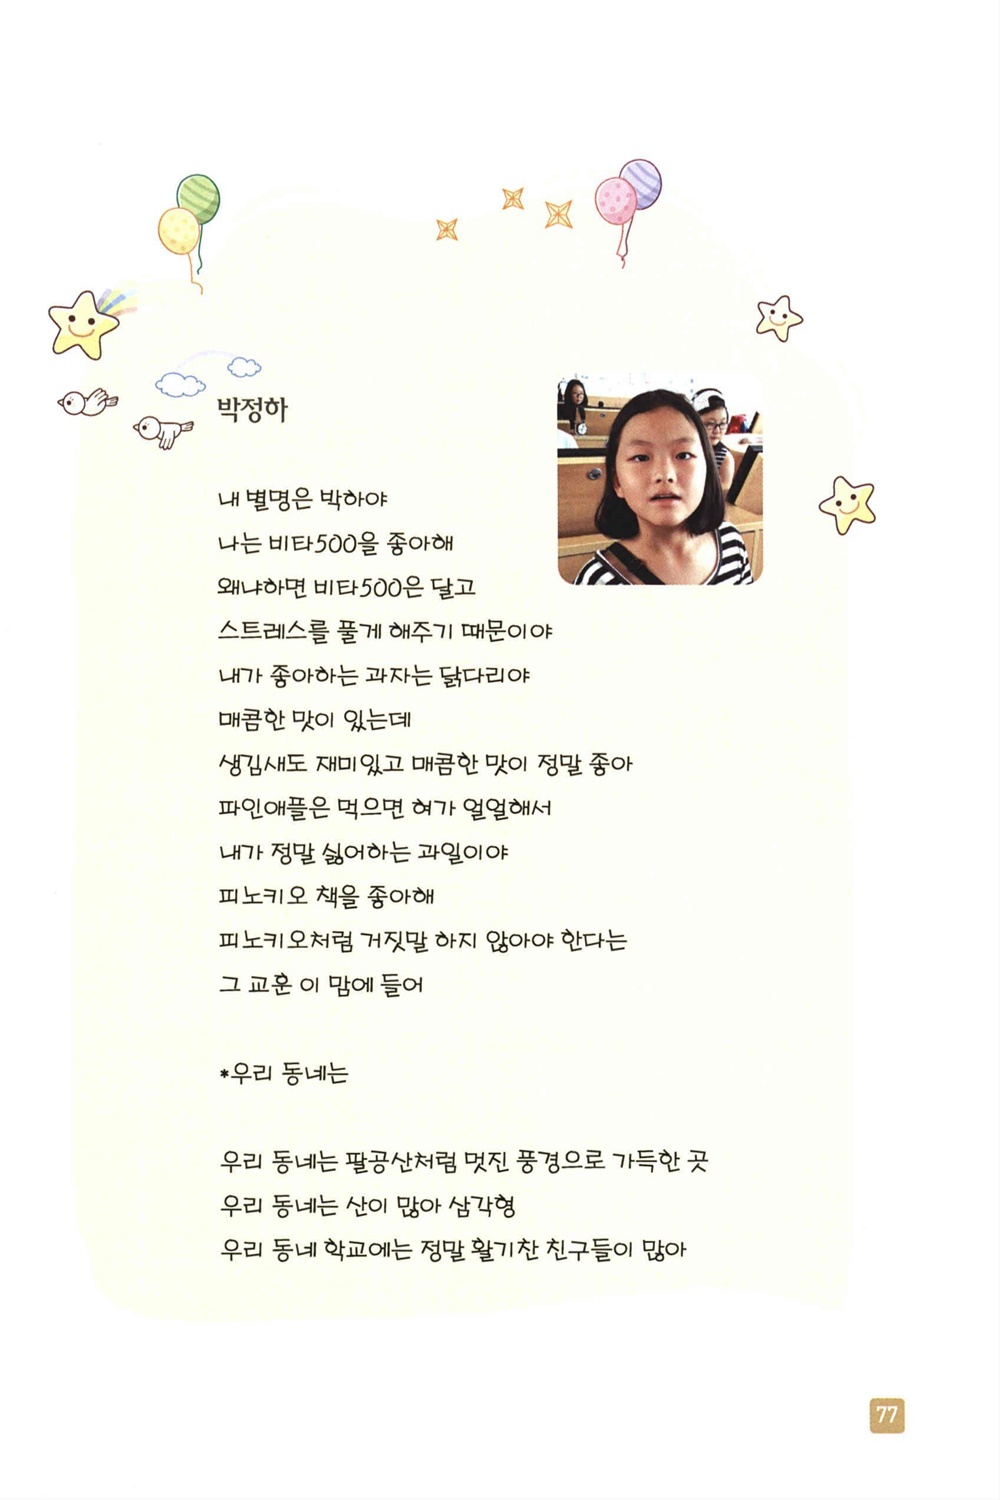 박정하
내 별명은 박하야
나는 비타500을 좋아해
왜냐하면 비타500은 달고
스트레스를 풀게 해주기 때문이야
내가 좋아하는 과자는 닭다리야
매콤한 맛이 있는데
생김새도 재미있고 매콤한 맛이 정말 좋아
파인애플은 먹으면 혀가 얼얼해서
내가 정말 싫어하는 과일이야
피노키오 책을 좋아해
피노키오처럼 거짓말 하지 않아야 한다는
그 교훈 이 맘에 들어
*우리 동네는
우리 동네는 팔공산처럼 멋진 풍경으로 가득한 곳
우리 동네는 산이 많아 삼각형
우리 동네 학교에는 정말 활기찬 친구들이 많아
77